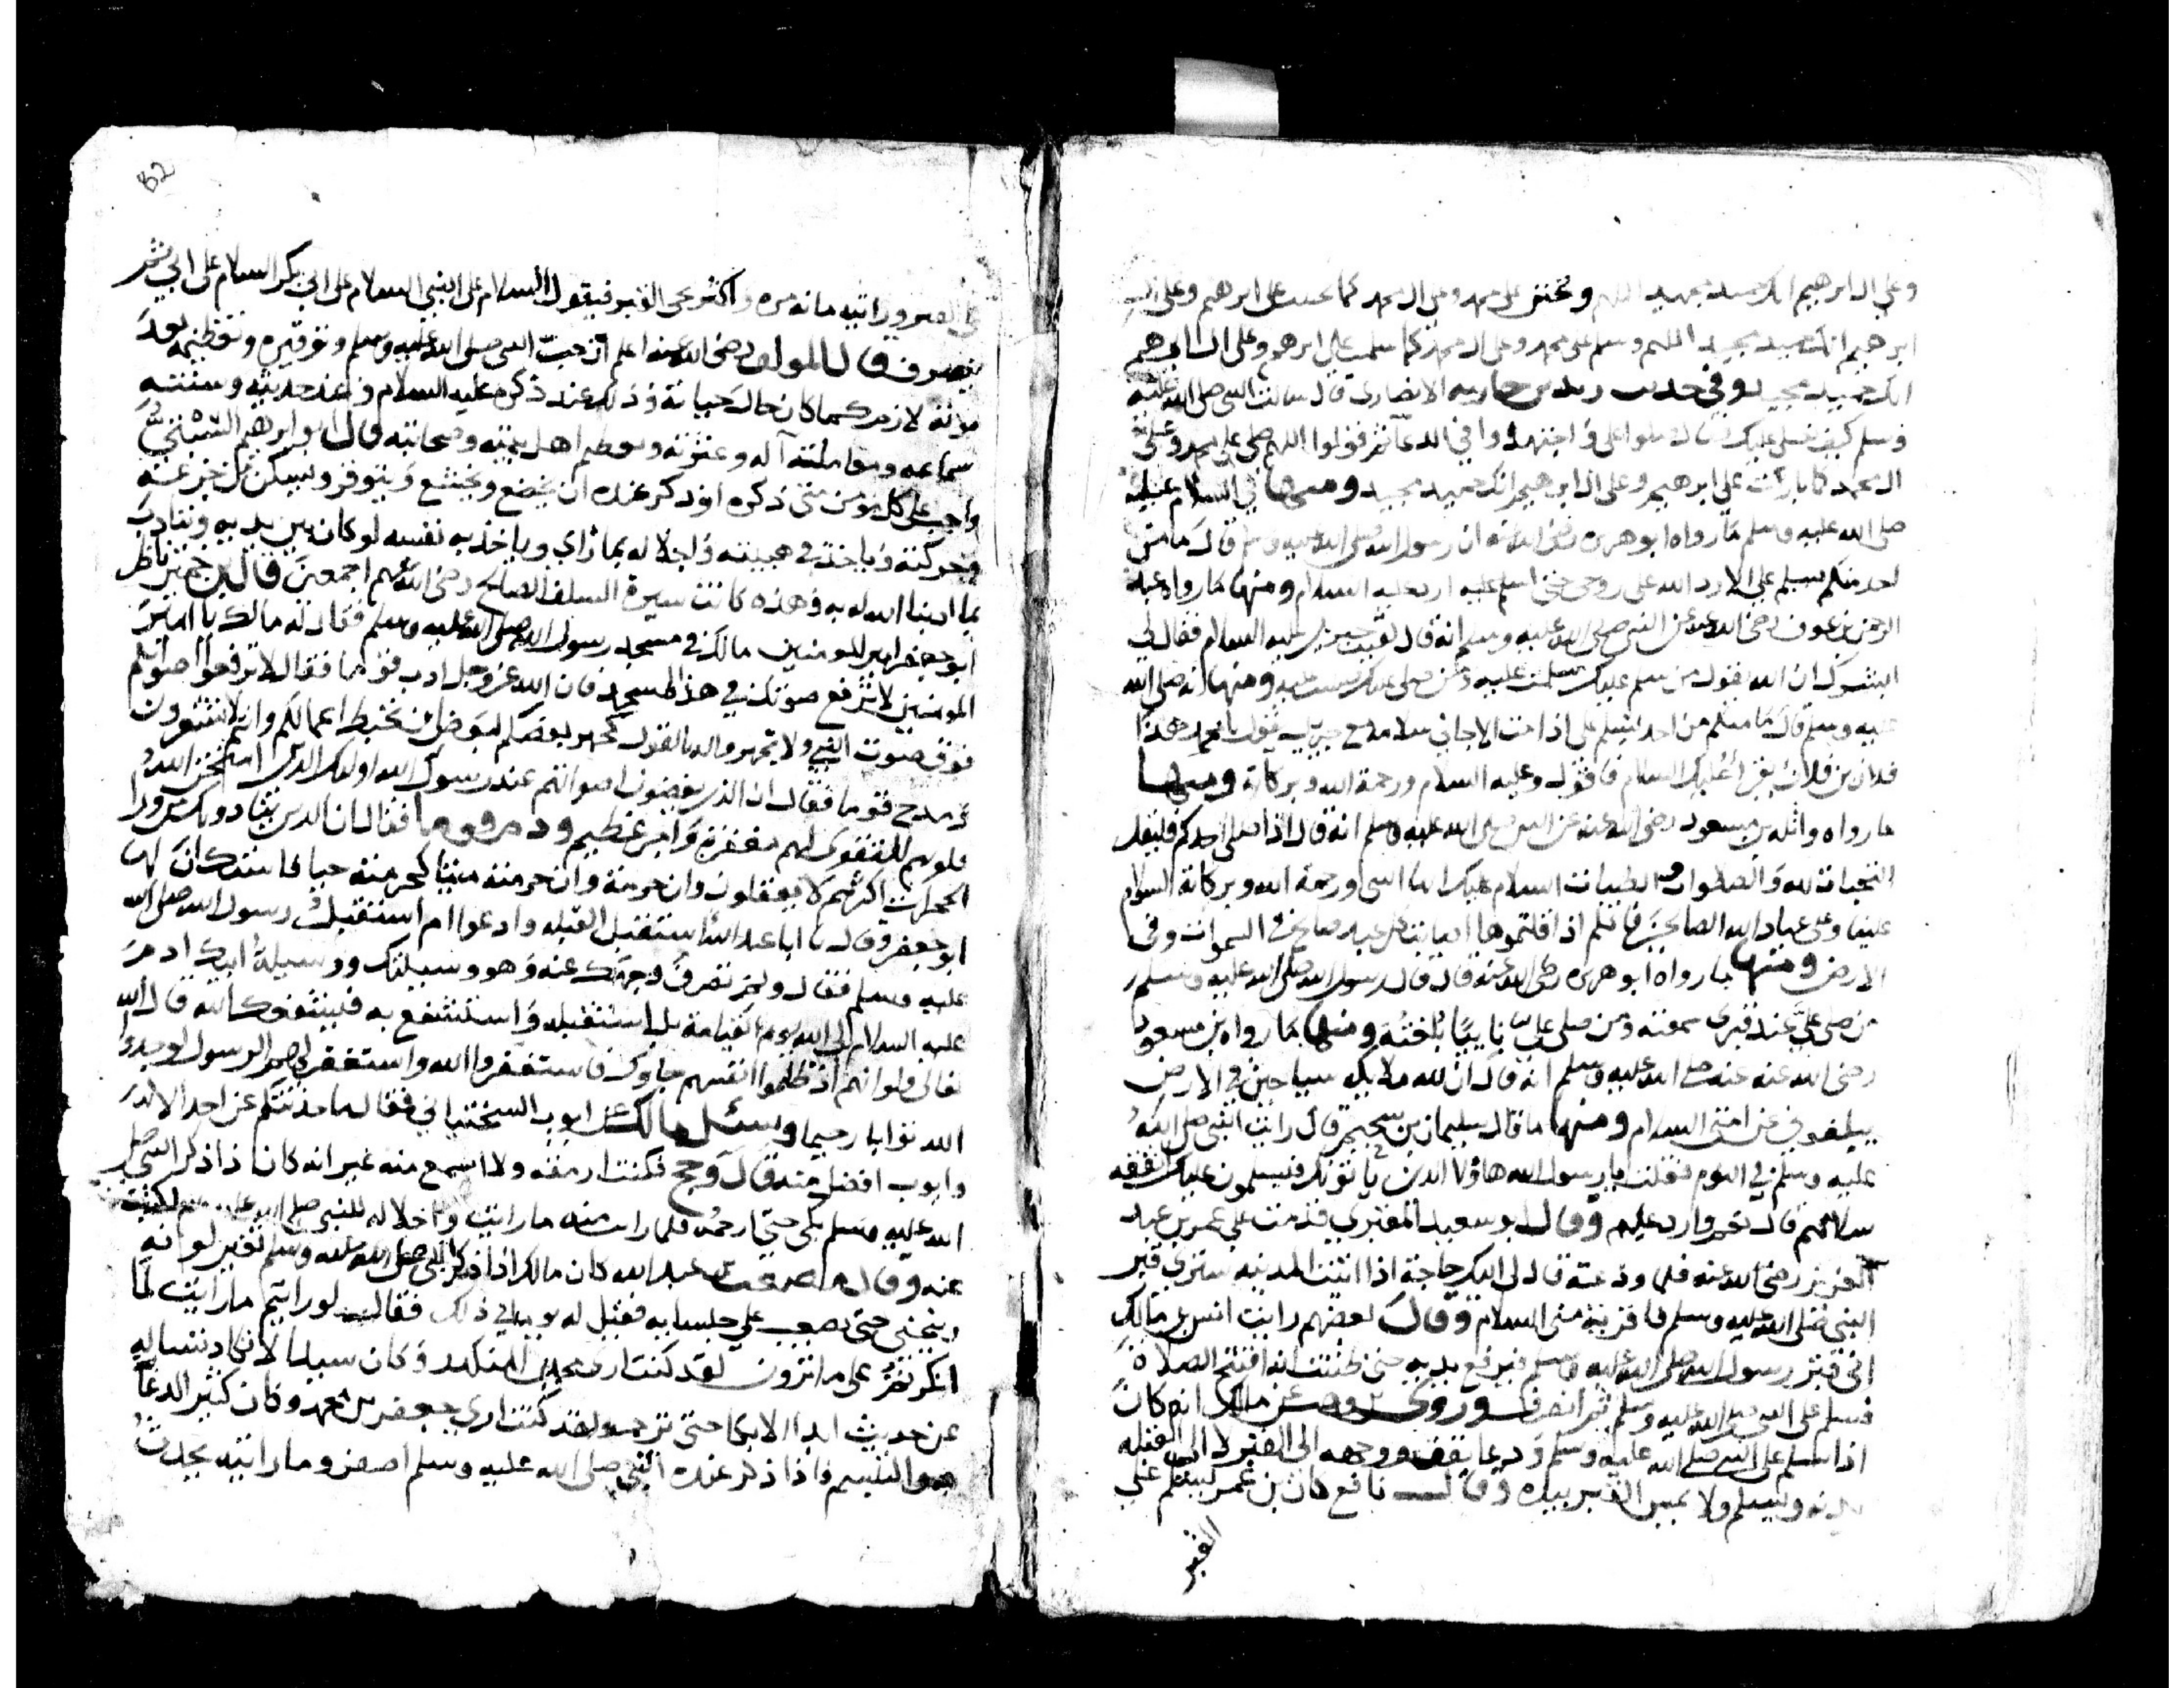 وعلى ال ابرهيم انك حميد مجيد اللهم وتحنن على محمد وعلى ال محمد كما تحننت على ابرهيم وعلى ال
ابرهيم انك حميد مجيد اللهم وسلم على محمد وعلى ال محمد كما سلمت على ابرهيم وعلى ال ابرهيم
انك حميد مجيد وفي حديث زيد بن حارثه الانصارى قال سالت النبي صلى الله عليه
وسلم كيف نصلى عليك فقال صلوا على واجتهدوا في الدعا ثم قولوا اللهم صلى على محمد وعلى
ال محمد كما باركت على ابرهيم وعلى ال ابرهيم انك حميد مجيد ومنها في السلام عليه
صلى الله عليه وسلم ما رواه ابو هريره رضى الله عنه ان رسول الله صلى الله عليه وسلم قال ما من
احد منكم يسلم على الا رد الله على روحى حتى اسلم عليه ارد عليه السلام ومنها ما رواه عبد
الرحمن بن عوف رضى الله عنه عن النبي صلى الله عليه وسلم انه قال لقيت جبريل عليه السلام فقال لي
ابشرك ان الله يقول من سلم عليك سلمت عليه ومن صلى عليك صليت عليه ومنها انه صلى الله
عليه وسلم قال ما منكم من احد يسلم على اذا مت الا جاني سلامه مع جبريل يقول يا محمد هذا
فلان بن فلان يقرا عليك السلام فاقول وعليه السلام ورحمة الله وبركاته ومنها
ما رواه واثله بن مسعود رضى الله عنه عن النبي صلى الله عليه وسلم انه قال اذا صلى احدكم فليقل
التحيات لله والصلوات والطيبات السلام عليك ايها النبي ورحمة الله وبركاته السلام
علينا وعلى عباد الله الصالحين فانكم اذا قلتموها اصابت كل عبد صالح في السموات وفي
الارض ومنها ما رواه ابو هريره رضى الله عنه قال قال رسول الله صلى الله عليه وسلم
من صلى على عند قبرى سمعته ومن صلى على نايبا بلغته ومنها ما رواه بن مسعود
رضى الله عنه عنه صلى الله عليه وسلم انه قال ان لله ملايكه سياحين في الارض
يبلغوني عن امتى السلام ومنها ما قال سليمان بن سحيم قال رايت النبي صلى الله
عليه وسلم في النوم فقلت يا رسول الله هاولا الذين ياتونك فيسلمون عليك اتفقه
سلامهم قال نعم وارد عليهم وقال ابو سعيد المقبرى قدمت على عمر بن عبد
العزيز رضى الله عنه فلما ودعته قال لى اليك حاجة اذا اتيت المدينه سترى قبر
النبي صلى الله عليه وسلم فاقريه منى السلام وقال بعضهم رايت انس بن مالك
اتى قبر رسول الله صلى الله عليه وسلم فرفع يديه حتى ظننت انه افتتح الصلاة
فسلم على النبي صلى الله عليه وسلم ثم انصرف وروى بن وهب عن مالك انه كان
اذا سلم على النبي صلى الله عليه وسلم ودعا يقف ووجهه الى القبر لا الى القبله
يدنو ويسلم ولا يمس القبر بيده وقال نافع كان بن عمر يسلم على
القبر
82
على القبر ورايته مائة مره واكثر يجى القبر فيقول السلام على النبي السلام على ابي بكر السلام على ابي ثم
ينصرف قال المولف رضى الله عنه اعلم ان حب النبي صلى الله عليه وسلم وتوقيره وتعظيمه بعد
موته لازم كما كان حال حياته وذلك عند ذكره عليه السلام وعند حديثه وسنته
سماعه ومعاملته آله وعترته وتعظيم اهل بيته وصحابته قال ابو ابرهيم التجيبي
واجب على كل مومن متى ذكره او ذكر عنده ان يخضع ويخشع ويتوقر ويسكن من
حركته وياخذ في هيبته واجلاله بما وياخذ به نفسه لو كان بين يديه ويتادب
بما ادبنا الله به وهذه كانت سيرة السلف الصالح رضى الله عنهم اجمعين قال بن حميد ناظر
ابو جعفر امير المومنين مالك في مسجد رسول الله صلى الله عليه وسلم فقال له مالك يا امير
المومنين لا ترفع صوتك في هذا المسجد فان الله عز وجل ادب قوما فقال لا ترفعوا اصواتكم
فوق صوت النبي ولا تجهروا له بالقول كجهر بعضكم لبعض ان تحبط اعمالكم وانتم لا تشعرون
ومدح قوما فقال ان الذين يغضون اصواتهم عند رسول الله اولئك الذين امتحن الله
قلوبهم للتقوى لهم مغفرة واجر عظيم وذم قوما فقال ان الذين ينادونك من ورا
الحجرات اكثرهم لا يعقلون وان حرمته ميتا كحرمته حيا فاستكان لها
ابو جعفر وقال يا ابا عبد الله استقبل القبله وادعوا ام استقبل رسول الله صلى الله
عليه وسلم فقال ولم تصرف وجهك عنه وهو وسيلتك ووسيلة ابيك ادم
عليه السلام الى الله يوم القيامة بل استقبله واستشفع به فيشفعك الله قال الله
تعالى ولو انهم اذ ظلموا انفسهم جاوك فاستغفروا الله واستغفر لهم الرسول لوجدوا
الله توابا رحيما وسئل مالك عن ايوب السختياني فقال ما حدثتكم عن احد الا
وايوب افضل منه قال وحج فكنت ارمقه ولا اسمع منه غير انه كان اذا ذكر النبي صلى
الله عليه وسلم بكى حتى ارحمه فلما رايت منه ما رايت واجلاله للنبي صلى الله عليه وسلم كتبت
عنه وقال مصعب بن عبد الله كان مالك اذا ذكر النبي صلى الله عليه وسلم تغير لونه
وينحنى حتى يصعب على جلسايه فقيل له يوما في ذلك فقال لو رايتم ما رايت لما
انكرتم على ما ترون لقد كنت ارى محمد بن المنكدر وكان سيدا لا نكاد نساله
عن حديث ابدا الا بكا حتى نرحمه ولقد كنت ارى جعفر بن محمد وكان كثير الدعا
هو والتبسم فاذا ذكر عنده النبي صلى الله عليه وسلم اصفر وما رايته يحدث